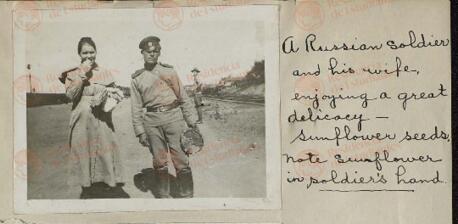 A Russian soldier
and his wife,
enjoying a great
delicacy –
Sunflower seeds.
Note Sunflower
in soldier's hand.
Residencia
de Estudiantes